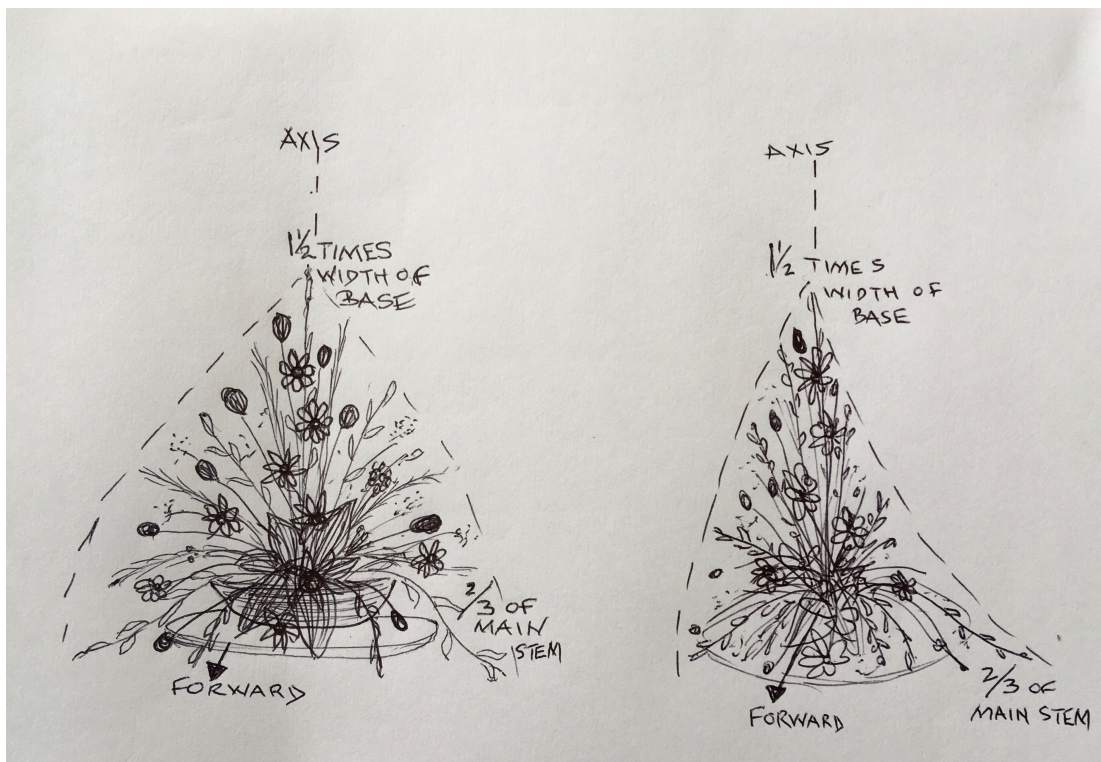 AXIS
1 1/2 TIMES
WIDTH OF
BASE
2/3 OF
MAIN
STEM
FORWARD
AXIS
1 1/2 TIMES
WIDTH OF
BASE
2/3 OF
MAIN STEM
FORWARD